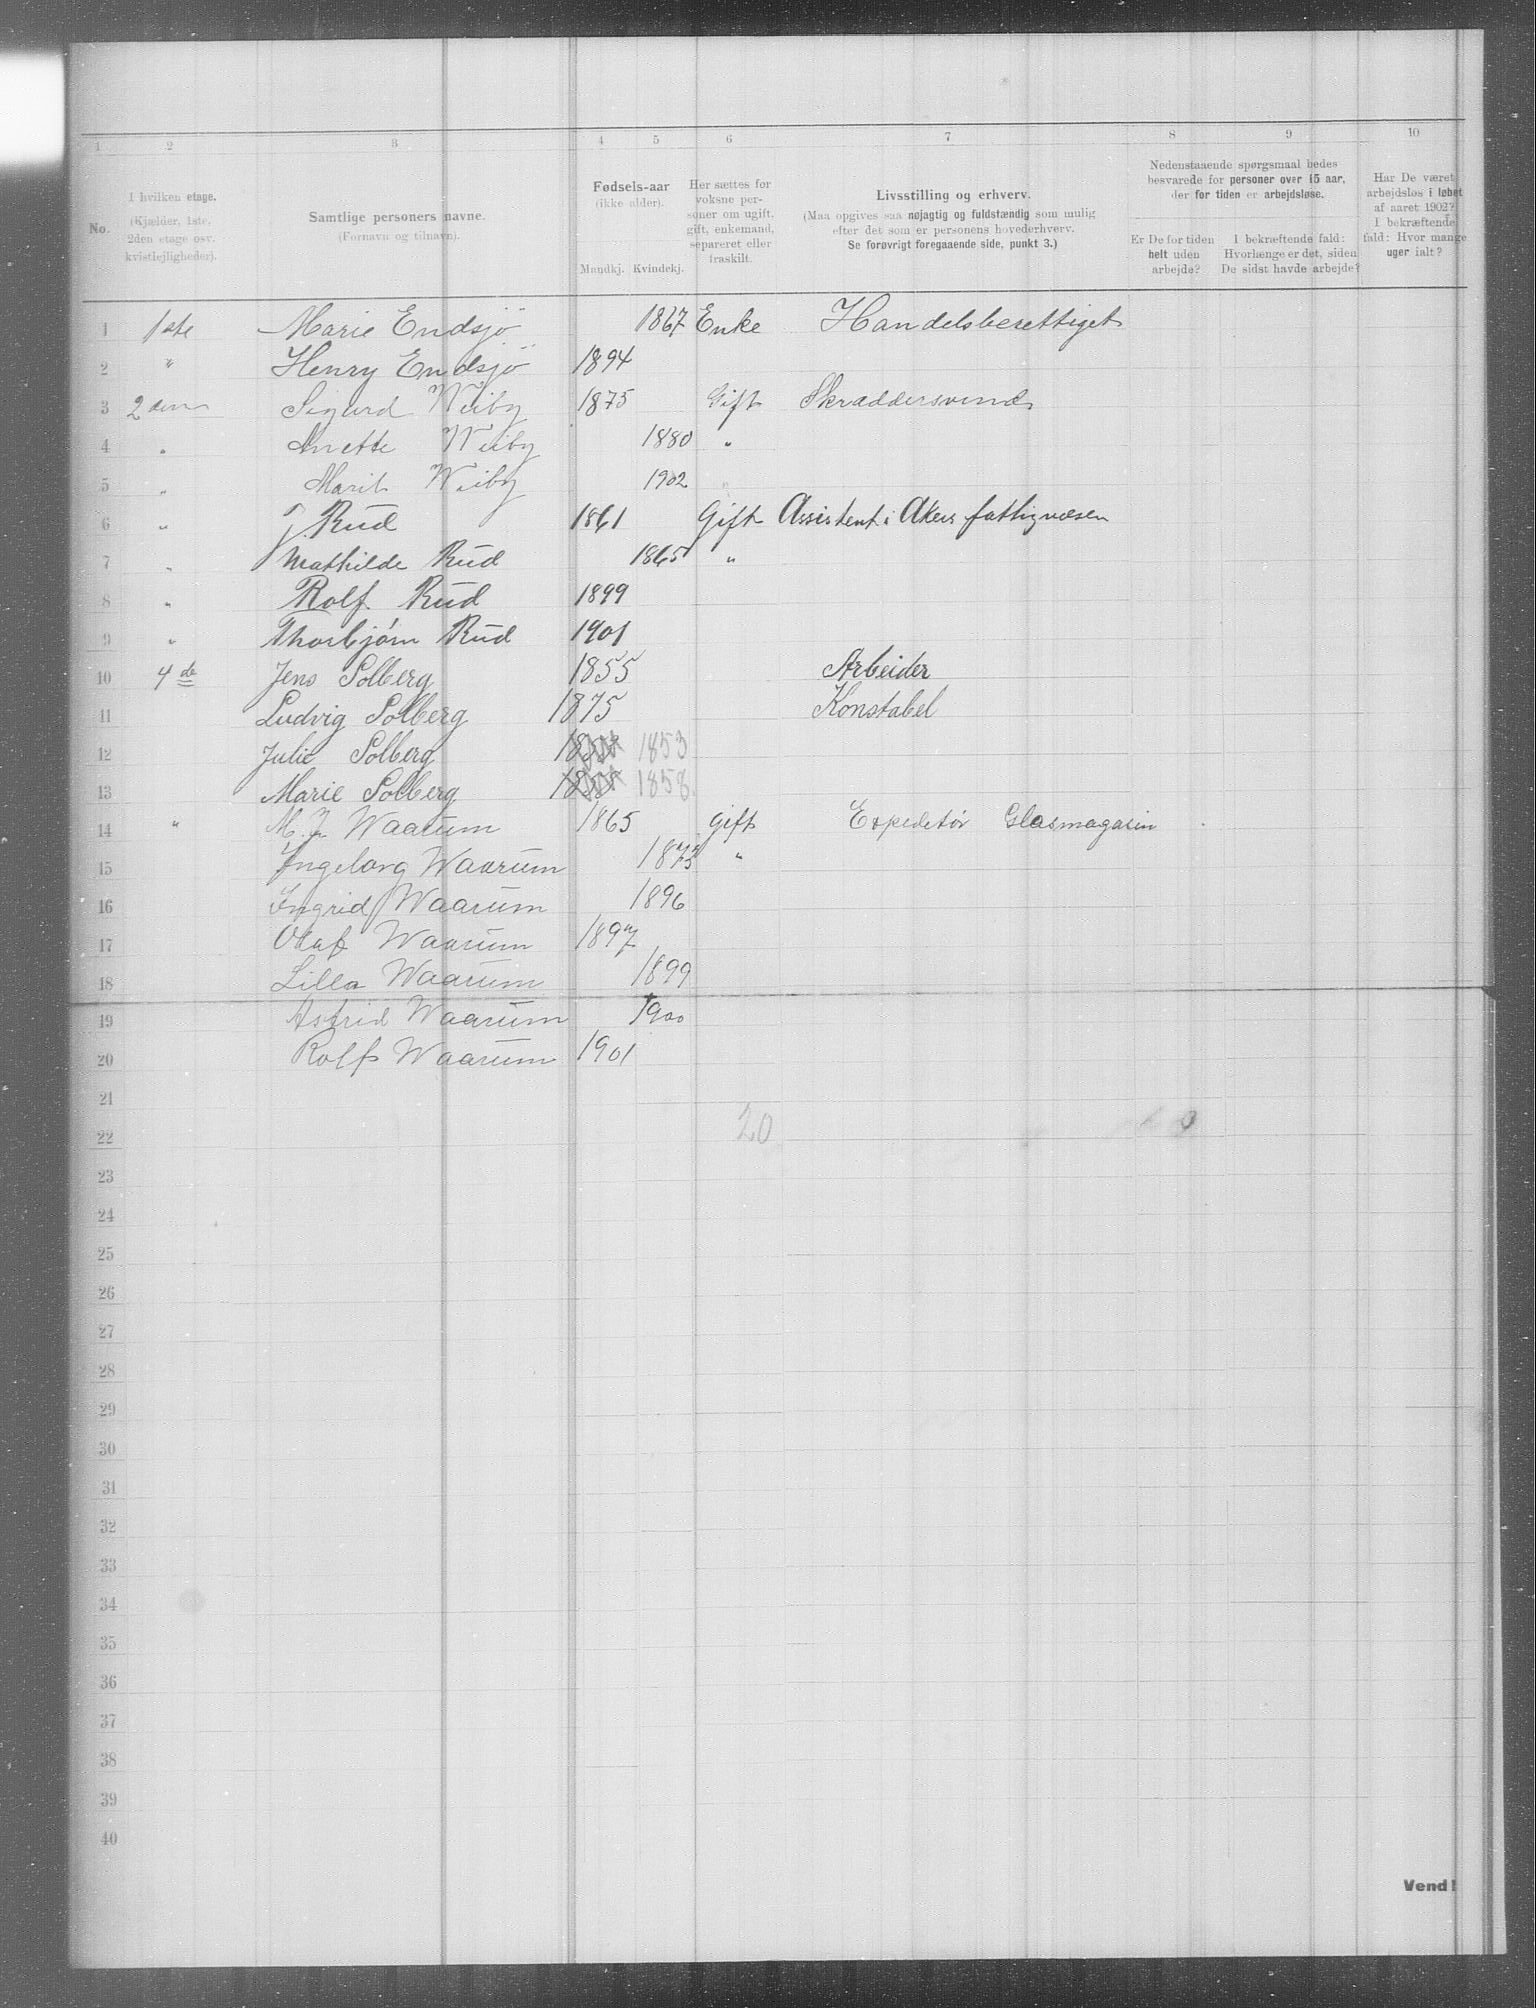 1 2 3 4 5 6 7 8 9 10
No.
I hvilken etage.
(Kjælder, 1ste, 2den etage osv. kvistlejligheder).
Samtlige personers navne.
(Fornavn og tilnavn).
Fødsels-aar
(ikke alder).
Mandkj. Kvindekj.
Her sættes for voksne personer om ugift, gift, enkemand, separeret eller fraskilt.
Livsstilling og erhverv.
(Maa opgives saa nøjagtig og fuldstændig som mulig
efter det som er personens hovederhverv.
Se forøvrigt foregaaende side, punkt 3.)
Nedenstaaende spørgsmaal bedes
besvarede for personer over 15 aar,
der for tiden er arbejdsløse.
Er De for tiden helt uden arbejde?
I bekræftende fald: Hvorlænge er det, siden De sidst havde arbejde?
Har De været arbejdsløs i løbet af aaret 1902? I bekræftende fald: Hvor mange uger ialt?
1 1ste Marie Endsjö 1867 Enke Handelsberettiget
2 " Henry Endsjö 1894
3 2den Sigurd Wiiby 1875 Gift Skræddersvend
4 " Anette Wiiby 1880 "
5 " Marit Wiiby 1902 "
6 " J. Rud 1861 Gift Assistent i Akers fattigvæsen
7 " Mathilde Rud 1865 "
8 " Rolf Rud 1899
9 " Thorbjørn Rud 1901
10 4de Jens Solberg 1855 Arbeider
11 Ludvig Solberg 1875 Konstabel
12 Julie Solberg 1853
13 Marie Solberg 1858
14 " M. Waarum 1865 gift Expeditør Glasmagasin
15 Ingeborg Waarum 1875 "
16 Ingrid Waarum 1896
17 Olaf Waarum 1897
18 Lilla Waarum 1899
19 Astrid Waarum 1900
20 Rolf Waarum 1901
21
22 20
23
24
25
26
27
28
29
30
31
32
33
34
35
36
37
38
39
40
Vend!